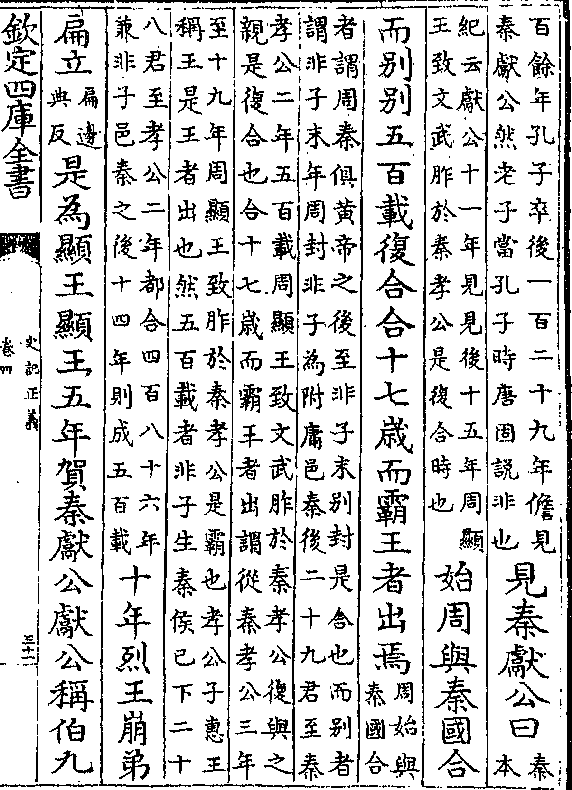 百餘年孔子卒後一百二十九年儋見
秦獻公然老子當孔子時唐固説非也
見秦獻公曰
秦
本
紀云獻公十一年見見後十五年周顯
王致文武胙於秦孝公是復合時也
始周與秦國合
而别别五百載復合合十七歳而霸王者出焉
周始與
秦國合
者謂周秦俱黄帝之後至非子末别封是合也而别者
謂非子末年周封非子為附庸邑秦後二十九君至秦
孝公二年五百載周顯王致文武胙於秦孝公復與之
親是復合也合十七歳而霸王者出謂從秦孝公三年
至十九年周顯王致胙於秦孝公是霸也孝公子惠王
稱王是王者出也然五百載者非子生秦侯已下二十
八君至孝公二年都合四百八十六年
兼非子邑秦之後十四年則成五百載
十年烈王崩弟
扁立
扁邊
典反
是為顯王顯王五年賀秦獻公獻公稱伯九
欽定四庫全書
史記正義
卷四
三十二